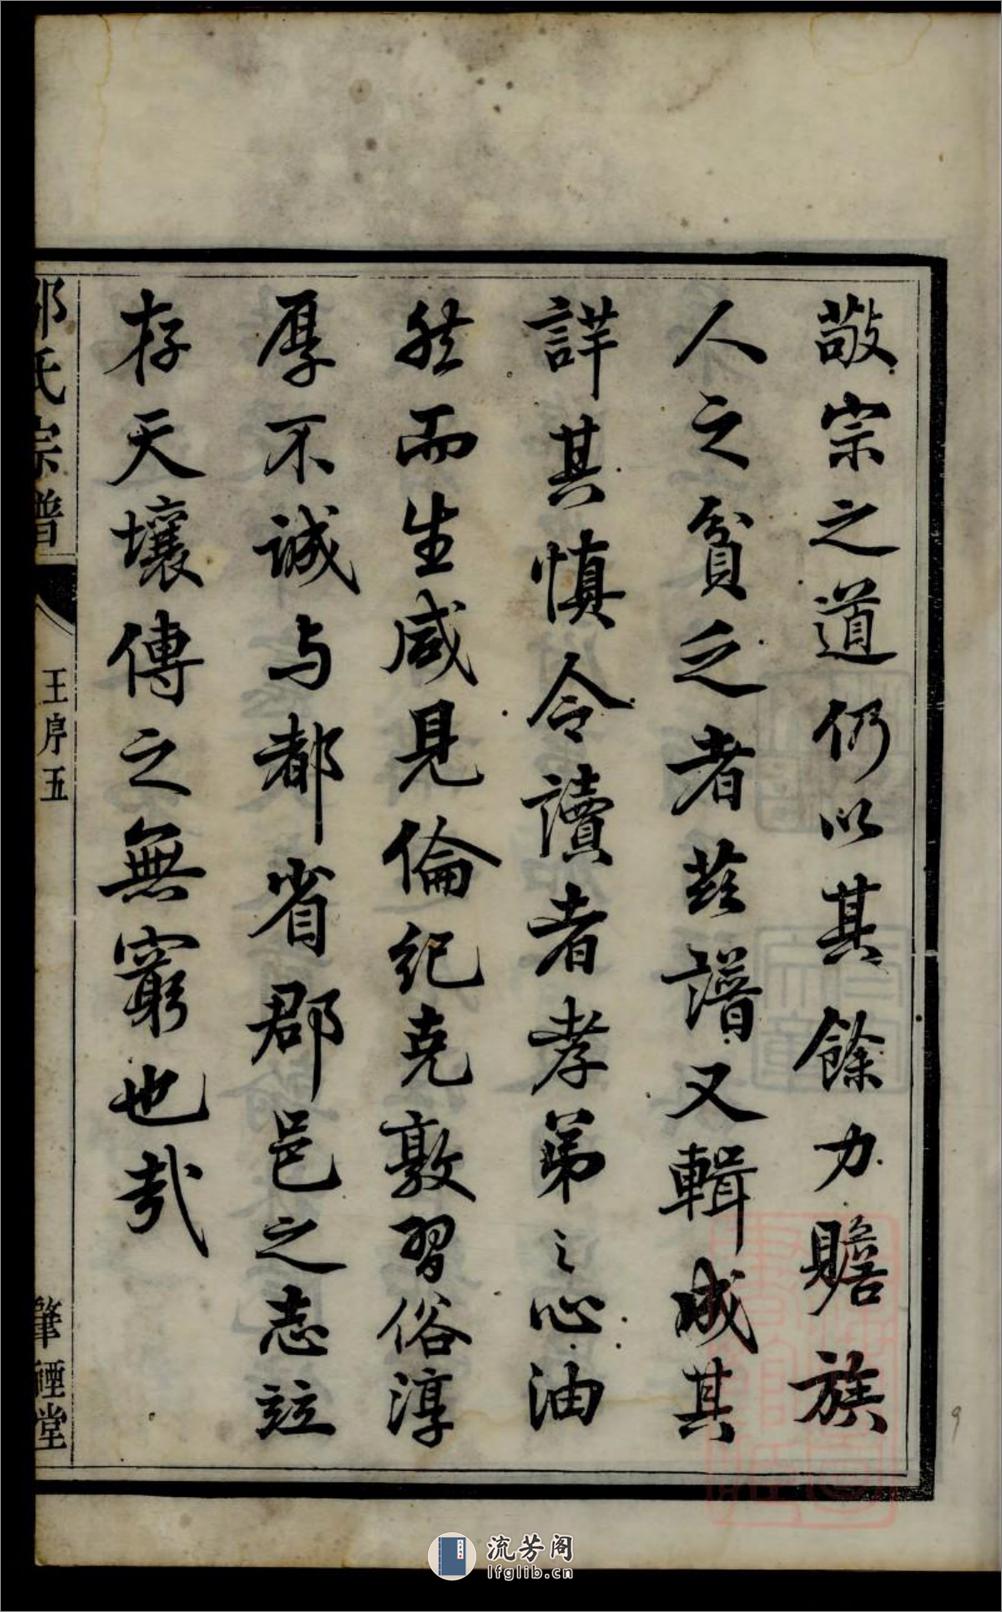 敬宗之道仍以其餘力贍族
人之貧乏者茲譜又輯成其
詳其慎令讀者孝弟之心油
然而生咸見倫紀克敦習俗淳
厚不誠与都省郡邑之志竝
存天壤傳之無窮也哉
氏宗譜
王序五
肇禋堂
9
流芳阁
lfglib.cn